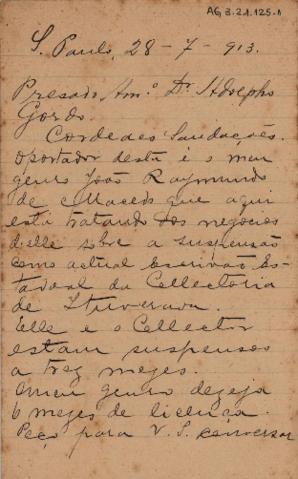 AG 3.21.125.1
S. Paulo, 28-7-913.
Presado Am.º Dr. Adolpho
Gordo.
Cordeaes Saudações.
O portador desta é o meu
genro João Raymundo
de Macedo que aqui
está tratando dos negocios
d'elle sobre a suspensão
como actual Escrivão Es-
tadoal da Collectoria
de Ituverava.
Elle e o Collector
estam suspensos
a trez mezes.
O meu genro dezeja
6 mezes de licença.
Peço para V. S. conversar